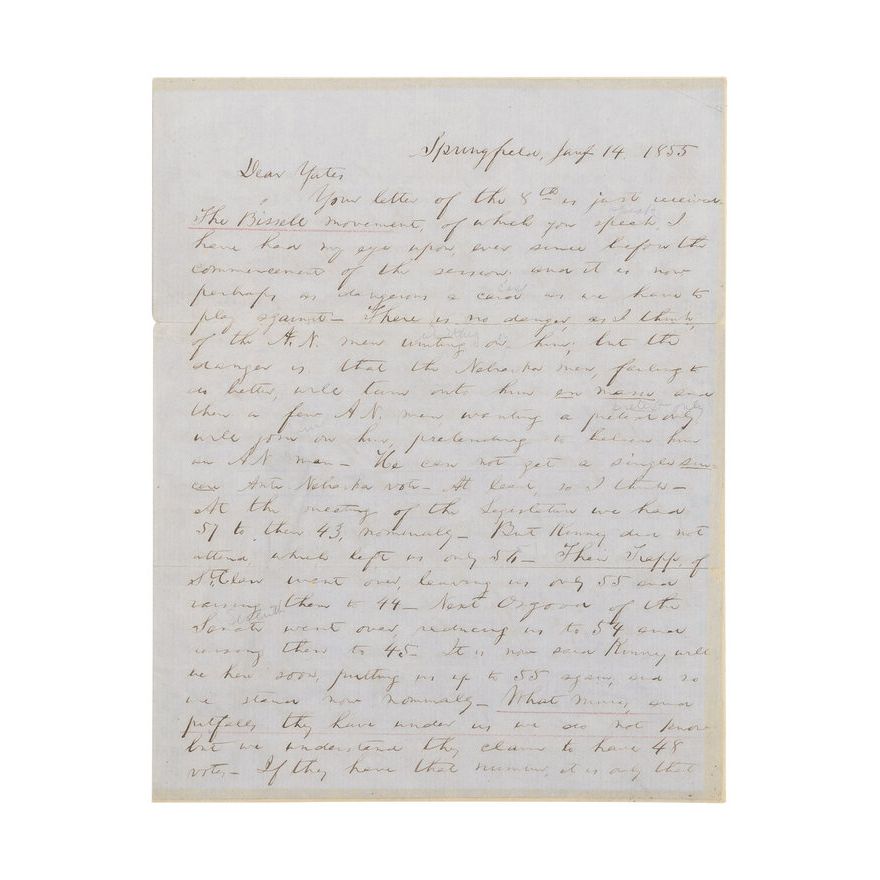 Springfield, Jany 14. 1855
Dear Yates
Your letter of the 8th is just received.
The Bissell movement, of which you speak, I
have had my eye upon, ever since before the
commencement of the session; and it is now
perhaps as dangerous a card as we have to
play against— There is no danger, as I think,
of the A.N. men uniting on him; but the
danger is that the Nebraska men, failing to
do better, will turn onto him en masse, and
then a few A.N. men, wanting a pretext only,
will join on him, pretending to believe him
an A N man— He can not get a single sin-
cere Anti Nebraska vote— At least, so I think—
At the meeting of the Legislature we had
57 to their 43, nominally— But Kinney did not
attend, which left us only 56— Then Trapp, of
St. Clair went over, leaving us only 55 and
raising them to 44— Next Osgood of the
Senate went over, reducing us to 54 and
raising them to 45— It is now said Kinney will
be here soon, putting us up to 55 again, and so
we stand now nominally— What mines, and
pitfalls they have under us we do not know
but we understand they claim to have 48
votes— If they have that number, it is only that